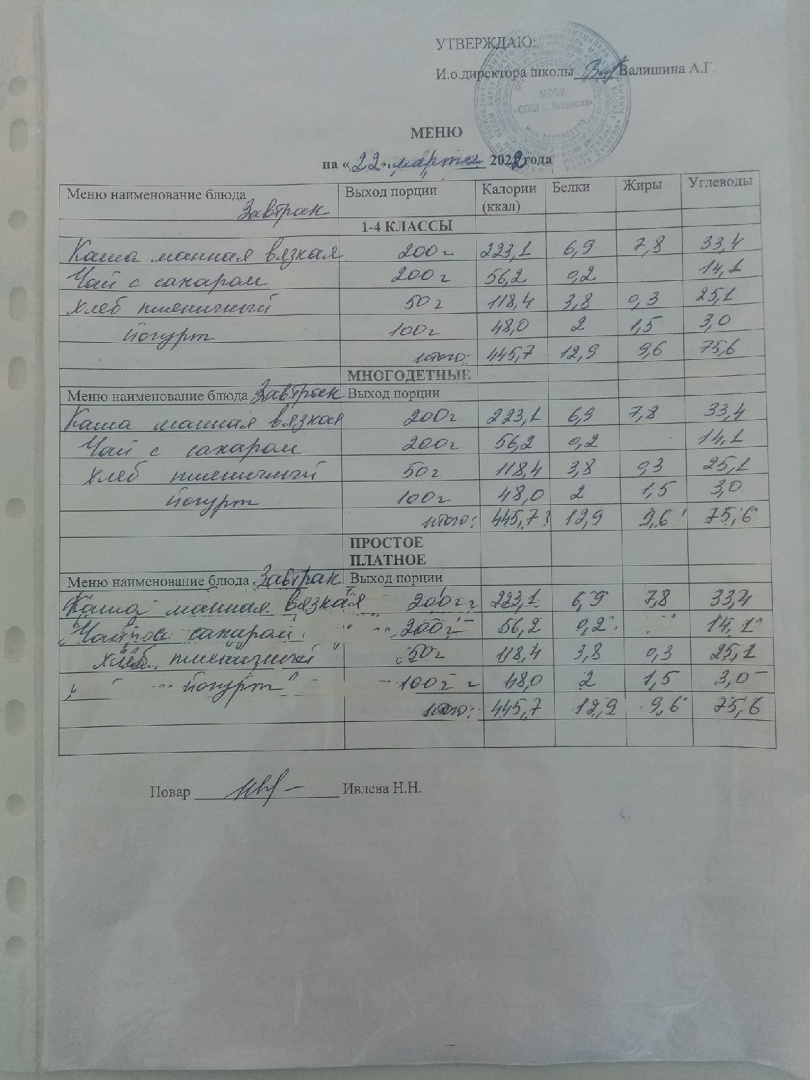 УТВЕРЖДАЮ:
И.о.директора школы Валишина А.Г.
МОБУ
МЕНЮ
на «22» марта 2022 года
Меню наименование блюда Завтрак Выход порции Калории (ккал) Белки Жиры Углеводы
1-4 КЛАССЫ
Каша манная вязкая 200г 223,1 6,9 7,8 33,4
Чай с сахаром 200г 56,2 0,2 14,1
Хлеб пшеничный 50г 118,4 3,8 0,3 25,1
йогурт 100г 48,0 2 1,5 3,0
итого: 445,7 12,9 9,6 75,6
МНОГОДЕТНЫЕ
Меню наименование блюда Завтрак Выход порции
Каша манная вязкая 200г 223,1 6,9 7,8 33,4
Чай с сахаром 200г 56,2 0,2 14,1
Хлеб пшеничный 50г 118,4 3,8 0,3 25,1
йогурт 100г 48,0 2 1,5 3,0
итого: 445,7 12,9 9,6 75,6
ПРОСТОЕ
ПЛАТНОЕ
Меню наименование блюда Завтрак Выход порции
Каша манная вязкая 200г 223,1 6,9 7,8 33,4
сахаром 200г 56,2 0,2 14,1
Хлеб пшеничный 50г 118,4 3,8 0,3 25,1
йогурт 100г 48,0 2 1,5 3,0
итого: 445,7 12,9 9,6 75,6
Повар Ивлева Н.Н.